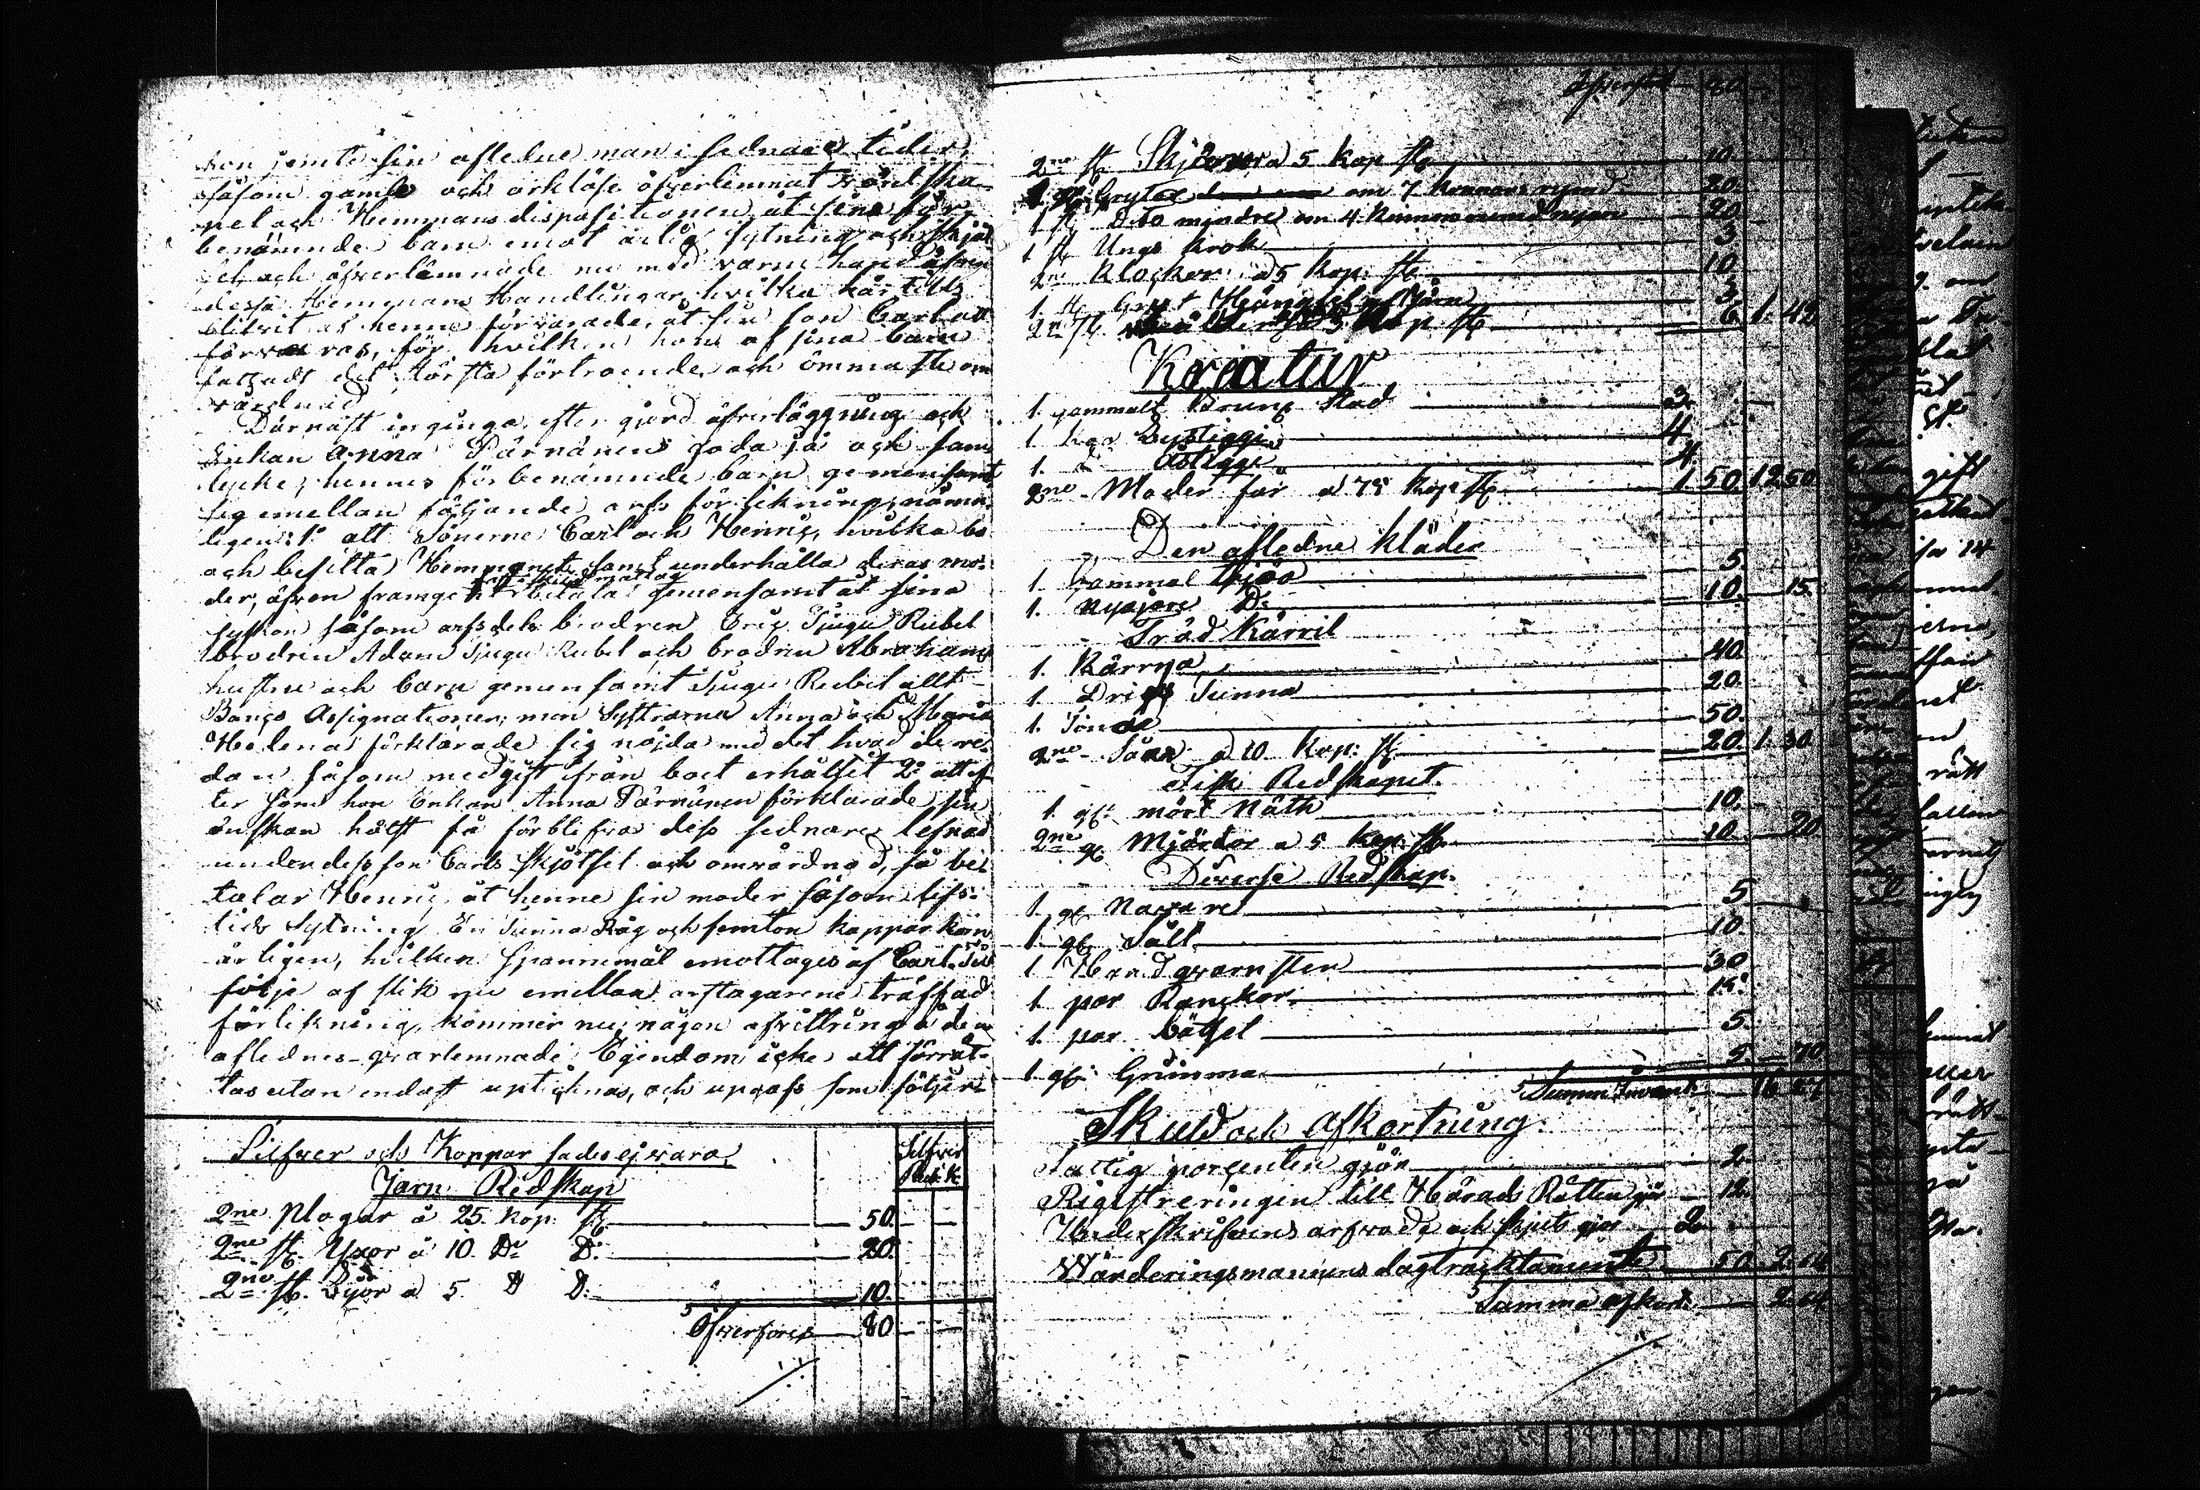 hon jemte sin afledne man i sednare tider
såsom gamle och orklöse öfverlemnat
och Hemmans dispositionen åt sina för
benämnde barn emot årlig sytning och skjöt
sel och öfverlämnade nu med varm hand äfven
dessa Hemmans Handlingar, hvilka här till
blifvit af henne förvarade, åt sin son Carl att
förvaras, för hvilken hon af sina barn
fattadt det största förtroende och ömmaste om
vårdnad
Dernäst ingingo, efter gjord öfverläggning och
Enkan Anna Pärnänens goda ja och sam
tycke, hennes förbenämnde barn gemensamt
sig emellan följande arfs förlikning, näm
ligen: 1º att Sönerne Carl och Henric, hvilka bo
och besitta Hemmanet samt underhålla deras mo
der, äfven framgent betala gemensamt åt sina
syskon såsom arfsdel: brodren Eric Tjugu Rubel
brodren Adam Tjugu Rubel och brodren Abrahams
hustru och barn gemensamt Tjugu Rubel allt
Banco Assignationer; men Systrarna Anna och Maria
Helena förklarade sig nöjda med det hvad de re
dan såsom medgift ifrån boet erhållit 2º att ef
ter som hon Enkan Anna Pärnänen förklarade sin
önskan hälst få förblifva dess sednare lefnad
under dess son Carls skjötsel och omvårdnad, så be
talar Henric åt henne sin moder såsom lifs
tids Sytning En Tunna Råg och femton kappar korn
årligen, hvilken spannemål emottages af Carl. Till
följe af slik nu emellan arftagarene träffad
förlikning, kommer nu någon afvittring å den
aflednes qvarlemnade Egendom icke att förrät
tas utan endast uptecknas, och upgafs som följer
Silfver och Koppar sades ej vara,
Silfver
Rub. K.
Jern Redskap
2ne Plogar à 25. Kop: st. 50.
2ne st. Yxor à 10. Do D: 20.
2ne st. à 5. D D: 10.
Öfverföres 80
Öfverfört 80
2ne st. Skjäror à 5 Kop st. 10.
1 st. Gryta om 7 Kannors rymd 20.
1 st. Dito mindre om 4. Kannors 20
1 st. Ungs krok 3
2ne Klockor à 5 Kop: st. 10
1. st. Gryt Hängsel af Järn 3.
2ne st. à 3 Kop st. 6. 1. 42
Kreatur
1. gammalt Brunt Stod 3.
1 Ko 4.
1. D: 4.
2ne Moder får à 75 Kop st. 1. 50. 12 50.
Den aflednes kläder
1. Gammal Tröja 5.
1. Nyare D: 10. 15.
Träd Kärril
1. Kärrna 40.
1. Dricks Tunna 20.
1. Tina 50.
2ne Såar à 10 Kop: st. 20. 1. 30
Fisk Redskapet.
1. gl: mört Näth 10.
2ne gl Mjärdor à 5 Kop: st. 10. 20
Diverse Redskap.
1. gl Navare 5
1. gl. Såll 10.
1 Handqvarnsten 30
1. par Ranckor 15.
1. par Bätsel 5.
1. gl: Grimma 5. 70
Summa Invent: 16 27
Skuld och Afkortning.
Fattig procenten gjör 2.
Registreringen till Härads Rätten gjör 12.
Underskrifvens arfvode och skjuts gjör 2
Wärderingsmannens dagtracktamente 50. 2. 64
Summa afkort: 2. 64.